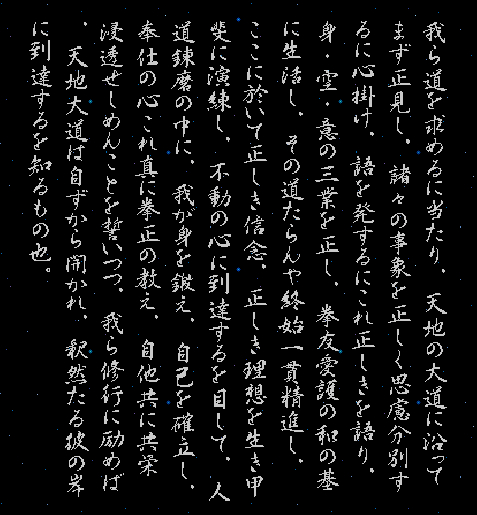 我ら道を求めるに当たり、天地の大道に沿って
まず正見し、諸々の事象を正しく思慮分別す
るに心掛け、語を発するにこれ正しきを語り、
身・空・意の三業を正し、拳友愛護の和の基
に生活し、その道たらんや終始一貫精進し、
ここに於いて正しき信念、正しき理想を生き甲
斐に演練し、不動の心に到達するを目して、人
道錬磨の中に、我が身を鍛え、自己を確立し、
奉仕の心これ真に拳正の教え、自他共に共栄
浸透せしめんことを誓いつつ、我ら修行に励めば
、天地大道は自ずから開かれ、釈然たる彼の岸
に到達するを知るもの也。